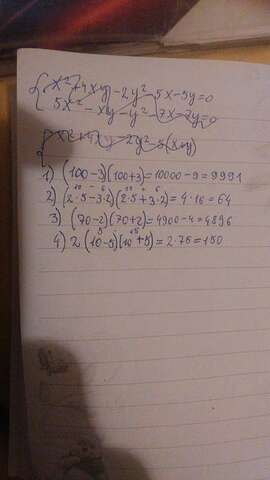 x² + 4xy - 2y² - 5x - 5y = 0
5x² - xy - y² - 7x - 7y = 0
x² + 4xy - 2y² - 5(x+y)
1) (100-3)(100+3) = 10000 - 9 = 9991
2) (2·5 - 3·2)(2·5 + 3·2) = 4·16 = 64
3) (70-2)(70+2) = 4900 - 4 = 4896
4) 2(10-5)(10+5) = 2·75 = 150